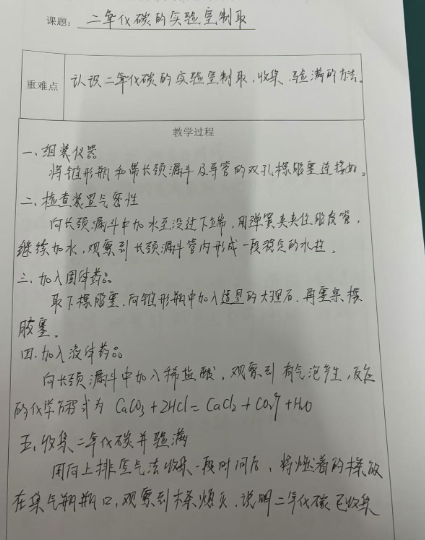 课题: 二氧化碳的实验室制取
重难点 认识二氧化碳的实验室制取、收集、验满的方法。
教学过程
一、组装仪器
将锥形瓶和带长颈漏斗及导管的双孔橡胶塞连接好。
二、检查装置气密性
向长颈漏斗中加水至没过下端,用弹簧夹夹住胶皮管,
继续加水,观察到长颈漏斗管内形成一段稳定的水柱。
三、加入固体药品
取下橡胶塞,向锥形瓶中加入适量的大理石,再塞紧橡
胶塞。
四、加入液体药品
向长颈漏斗中加入稀盐酸,观察到有气泡产生,反应
的化学方程式为 CaCO3+2HCl=CaCl2+CO2↑+H2O
五、收集二氧化碳并验满
用向上排空气法收集一段时间后,将燃着的木条放
在集气瓶瓶口,观察到木条熄灭,说明二氧化碳已收集